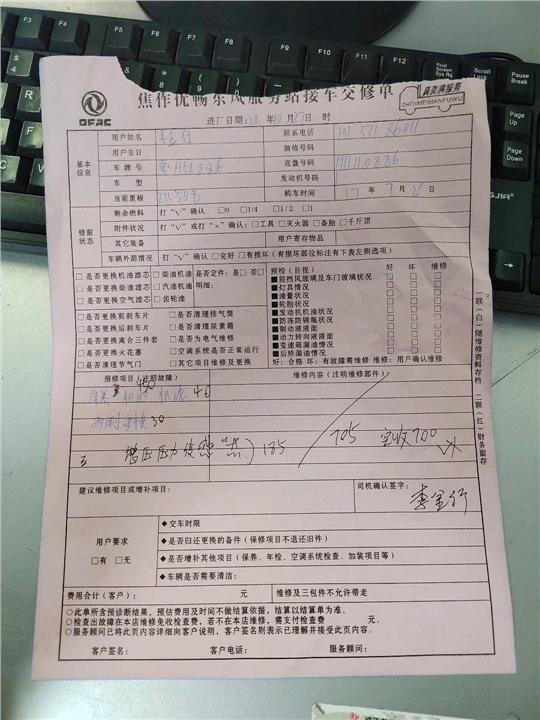 焦作优畅东风服务站接车交修单
DFAC
真美满服务
ZHENMEIMANFUWU
进厂日期: 年 10 月 27 日 时
基本信息
用户姓名
联系电话
用户生日
微信号码
车牌号
底盘号码 HH110886
车 型
发动机号码
当前里程
购车时间 17 年 7 月 日
修前状态
剩余燃料 打“√”确认 □0 □1/4 □1/2 □1
附件状况 打“√”或打“×”确认：□工具 □灭火器 □备胎 □千斤顶
其它装备 用户寄存物品
车辆外部情况 打“√”确认 □完好 □有损坏（有损坏部位标注有下表左侧选项）
□是否更换机油滤芯 □柴油机油 是否定件：是□ 否□
□是否更换柴油滤芯 □汽油机油 明细：
□是否更换空气滤芯 □齿轮油
□是否更换前刹车片 □是否清理排气筒
□是否更换后刹车片 □是否清理尿素箱
□是否更换离合三件套 □是否为电气维修
□是否更换火花塞 □空调系统是否正常运行
□是否清理节气门 □其它项目维修及更换
预检（目视） 好 坏 维修
■前挡风玻璃及车门玻璃状况 □ □ □
■灯具情况 □ □ □
■油量状况 □ □ □
■轮胎状况 □ □ □
■发动机机油情况 □ □ □
■防冻防锈瓶状况 □ □ □
■制动液液面 □ □ □
■动力转向液液面 □ □ □
■变速箱漏油情况 □ □ □
■后桥漏油情况 □ □ □
好：合格 坏：有故障需维修 维修：用户确认维修
报修项目（注明故障） 维修内容（注明维修部件）
机滤 40
30
增压压力传感 185
705 实收700
建议维修项目或增补项目：
司机确认签字：
李金行
用户要求
□有 □无
◆交车时限
◆是否归还更换的备件（保修项目不退还旧件）
◆是否增补其他项目（保养、年检、空调系统检查、加装项目等）
◆车辆是否需要清洁：
费用合计（客户）： 元 维修及三包件不允许带走
○此单所含预诊断结果，预估费用及时间不做结算依据，结算以结算单为准。
○检查出故障在本店维修免收检查费，若不在本店维修，需支付检查费 元。
○服务顾问已将此页内容详细向客户说明，客户签名则表示已理解并接受此页内容。
客户签名： 客户电话： 服务顾问：
一联（白）随维修资料存档 二联（红）财务留存
F3
F4
F5
F6
F7
F8
F9
F10
F11
F12
Pause
Break
PgUp
PgDn